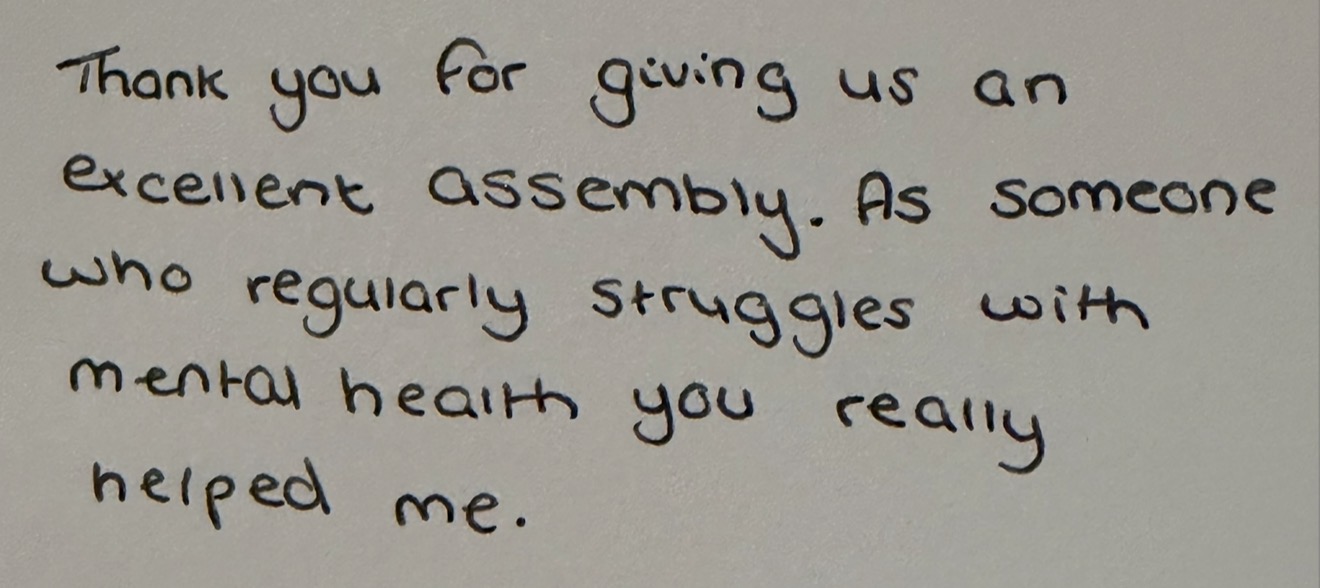 Thank you for giving us an
excellent assembly. As someone
who regularly struggles with
mental health you really
helped me.